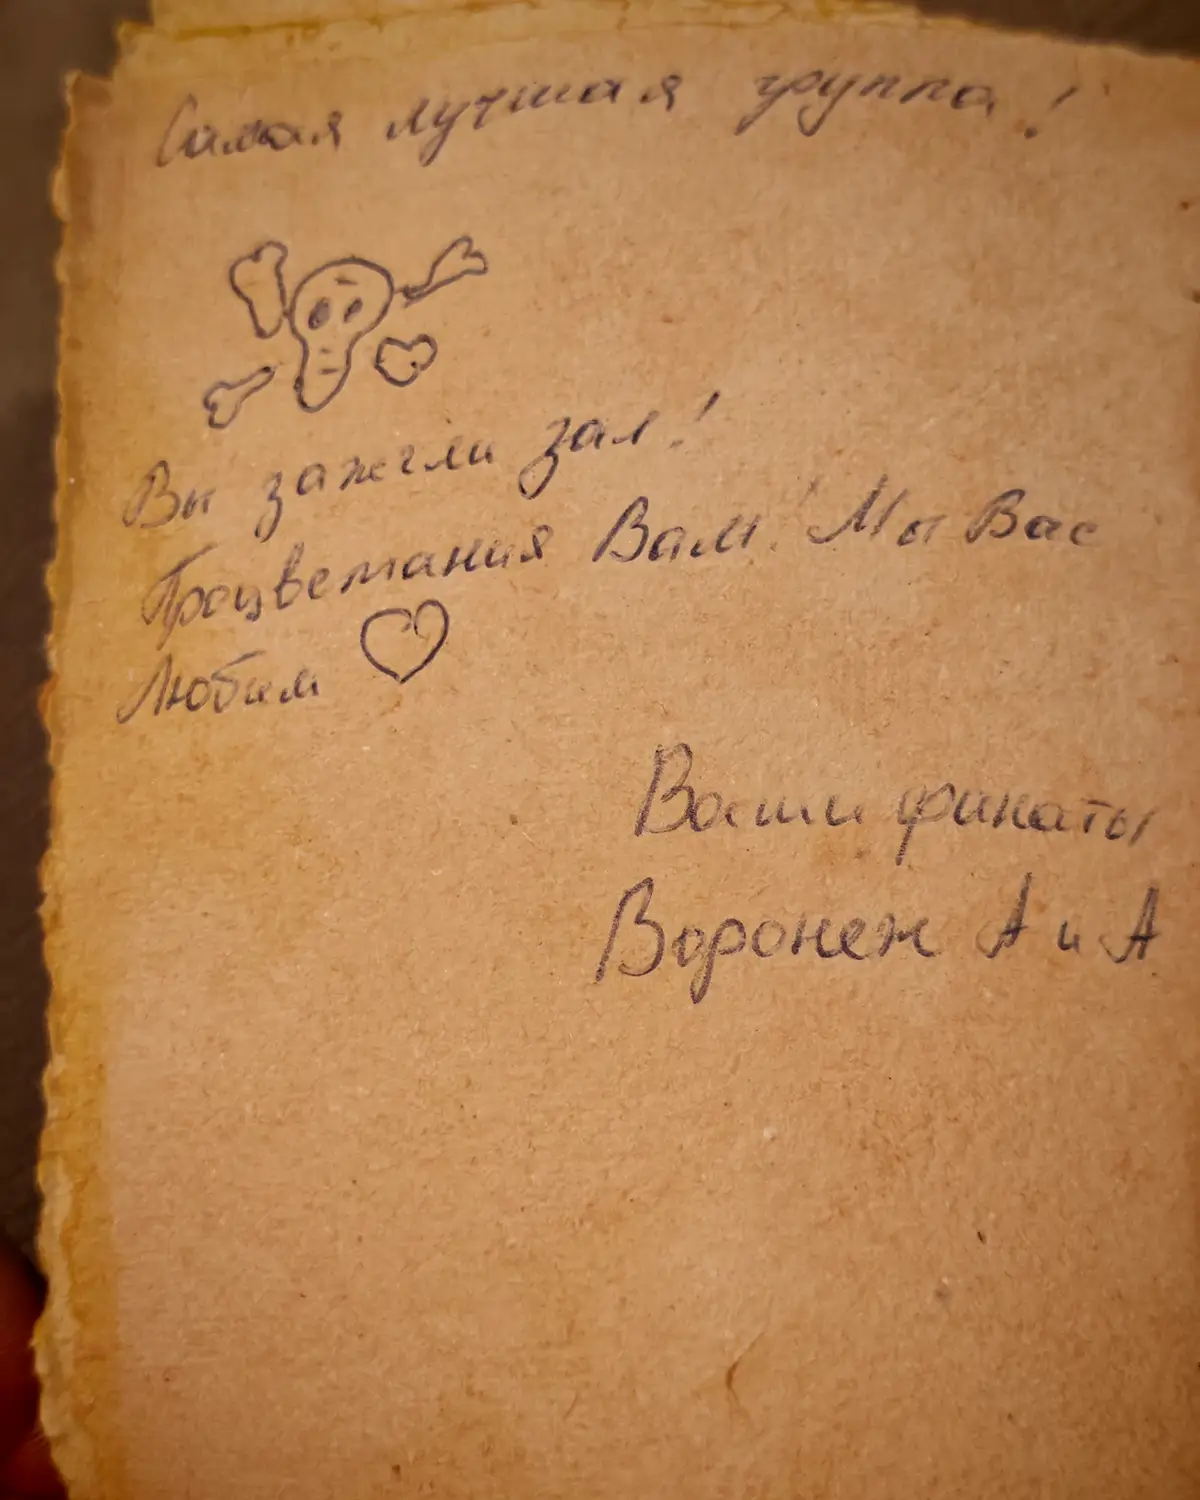 Самая лучшая группа!
Вы зажгли зал!
Процветания Вам! Мы Вас
Любим
Ваши финаты
Воронеж А и А